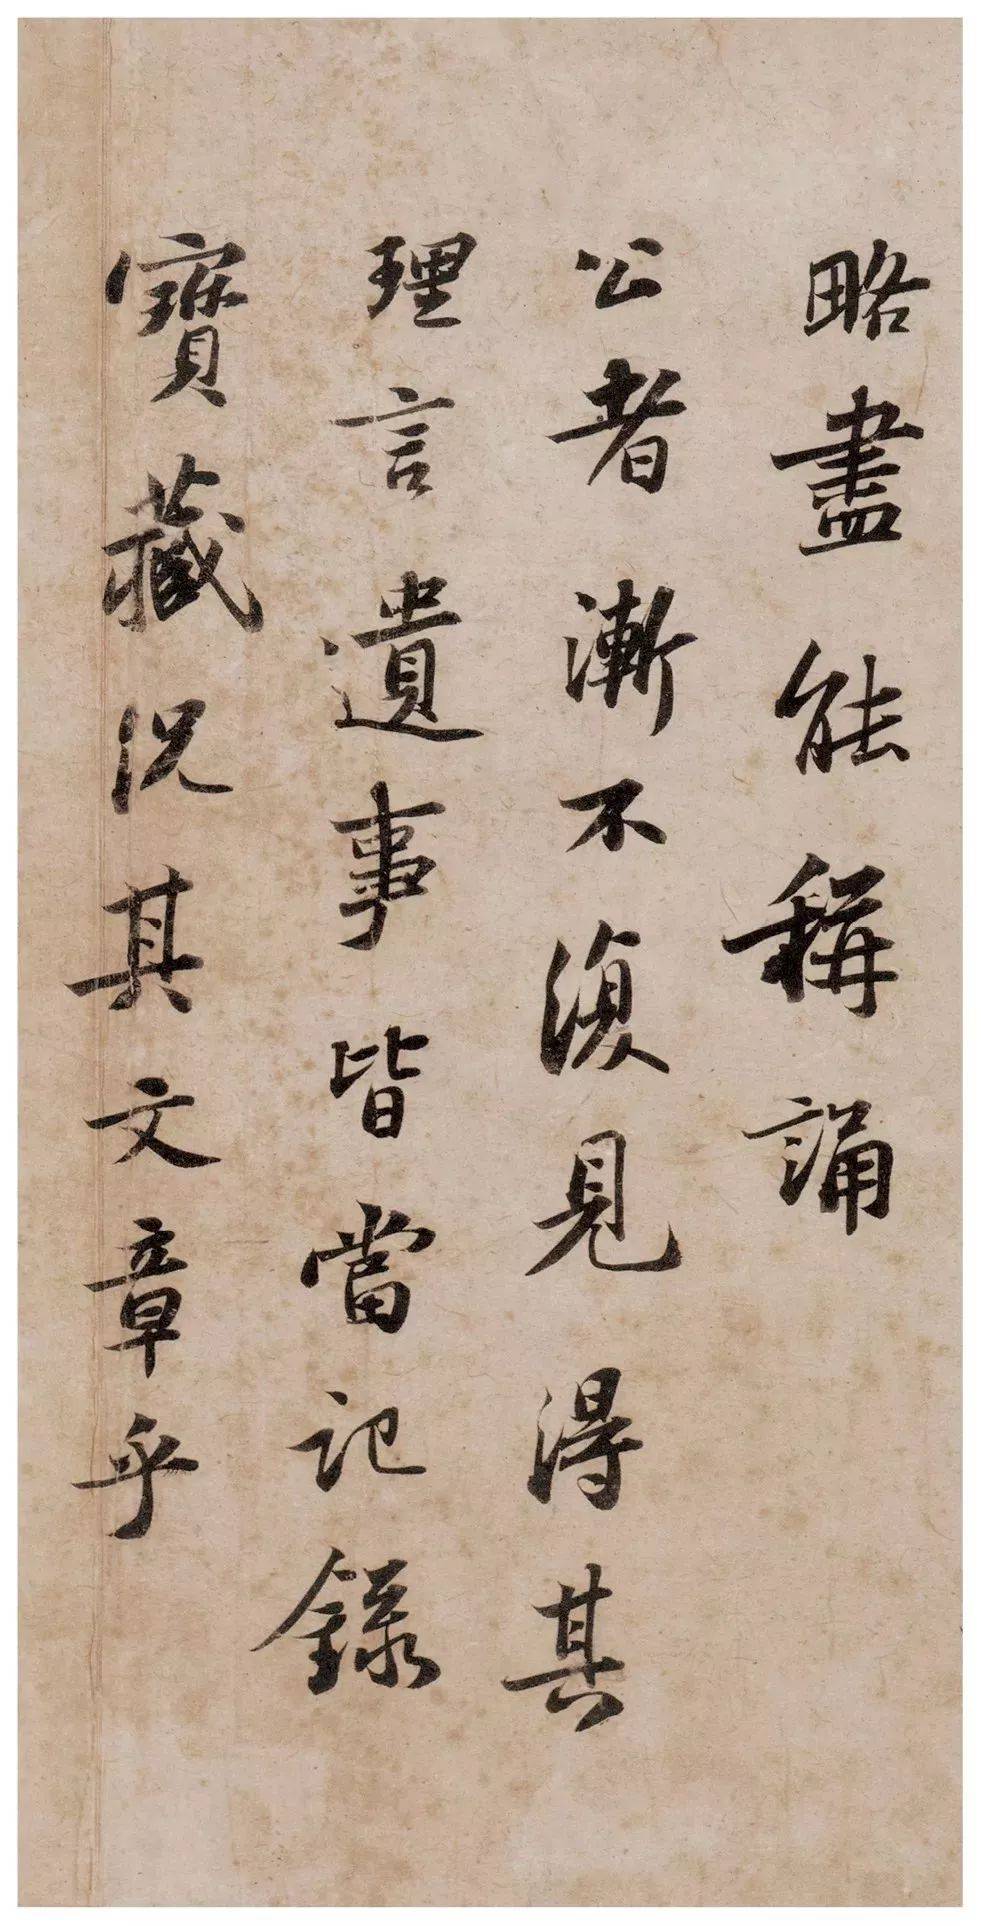 略盡能稱誦
公者漸不復見得其
理言遺事皆當記錄
寶藏況其文章乎